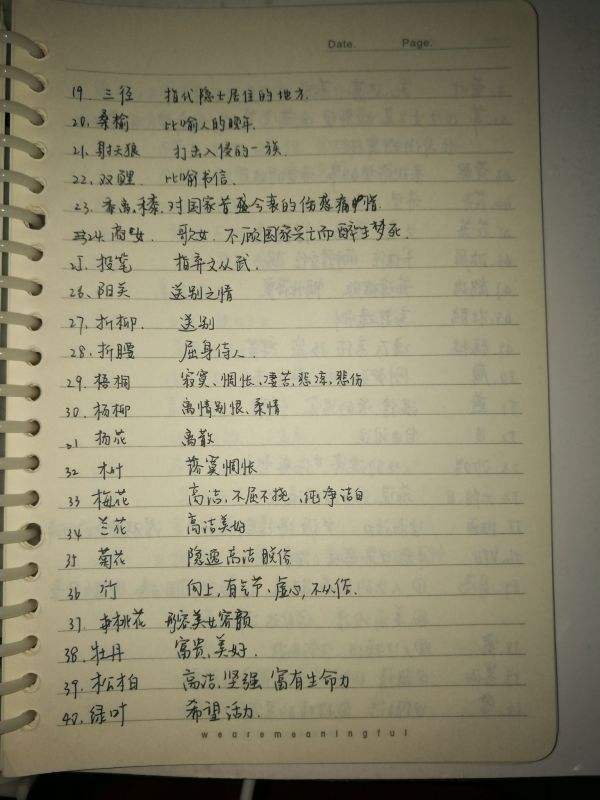 Date. Page.
19. 三径 指代隐士居住的地方.
20. 桑榆 比喻人的晚年.
21. 射天狼 打击入侵的一族.
22. 双鲤 比喻书信.
23. 黍离,禾黍.对国家昔盛今衰的伤感痛惜.
24. 商女. 歌女.不顾国家兴亡而醉生梦死.
25. 投笔 指弃文从武.
26. 阳关 送别之情
27. 折柳. 送别
28. 折腰 屈身侍人.
29. 梧桐 寂寞、惆怅、凄苦、悲凉、悲伤
30. 杨柳 离情别恨、柔情
31 杨花 离散
32 木叶 落寞惆怅
33 梅花 高洁,不屈不挠,纯净洁白
34 兰花 高洁美好
35 菊花 隐逸高洁脱俗
36 竹 向上,有气节、虚心,不从俗.
37. 桃花 形容美女容颜
38. 牡丹 富贵、美好.
39. 松柏 高洁、坚强 富有生命力
40. 绿叶 希望活力.
wearemeaningful